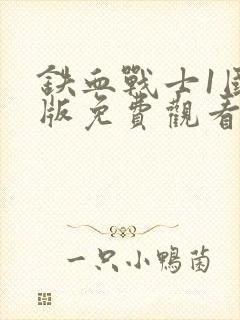 鉄血戰士1國
版免費觀看
一只小鴨菌